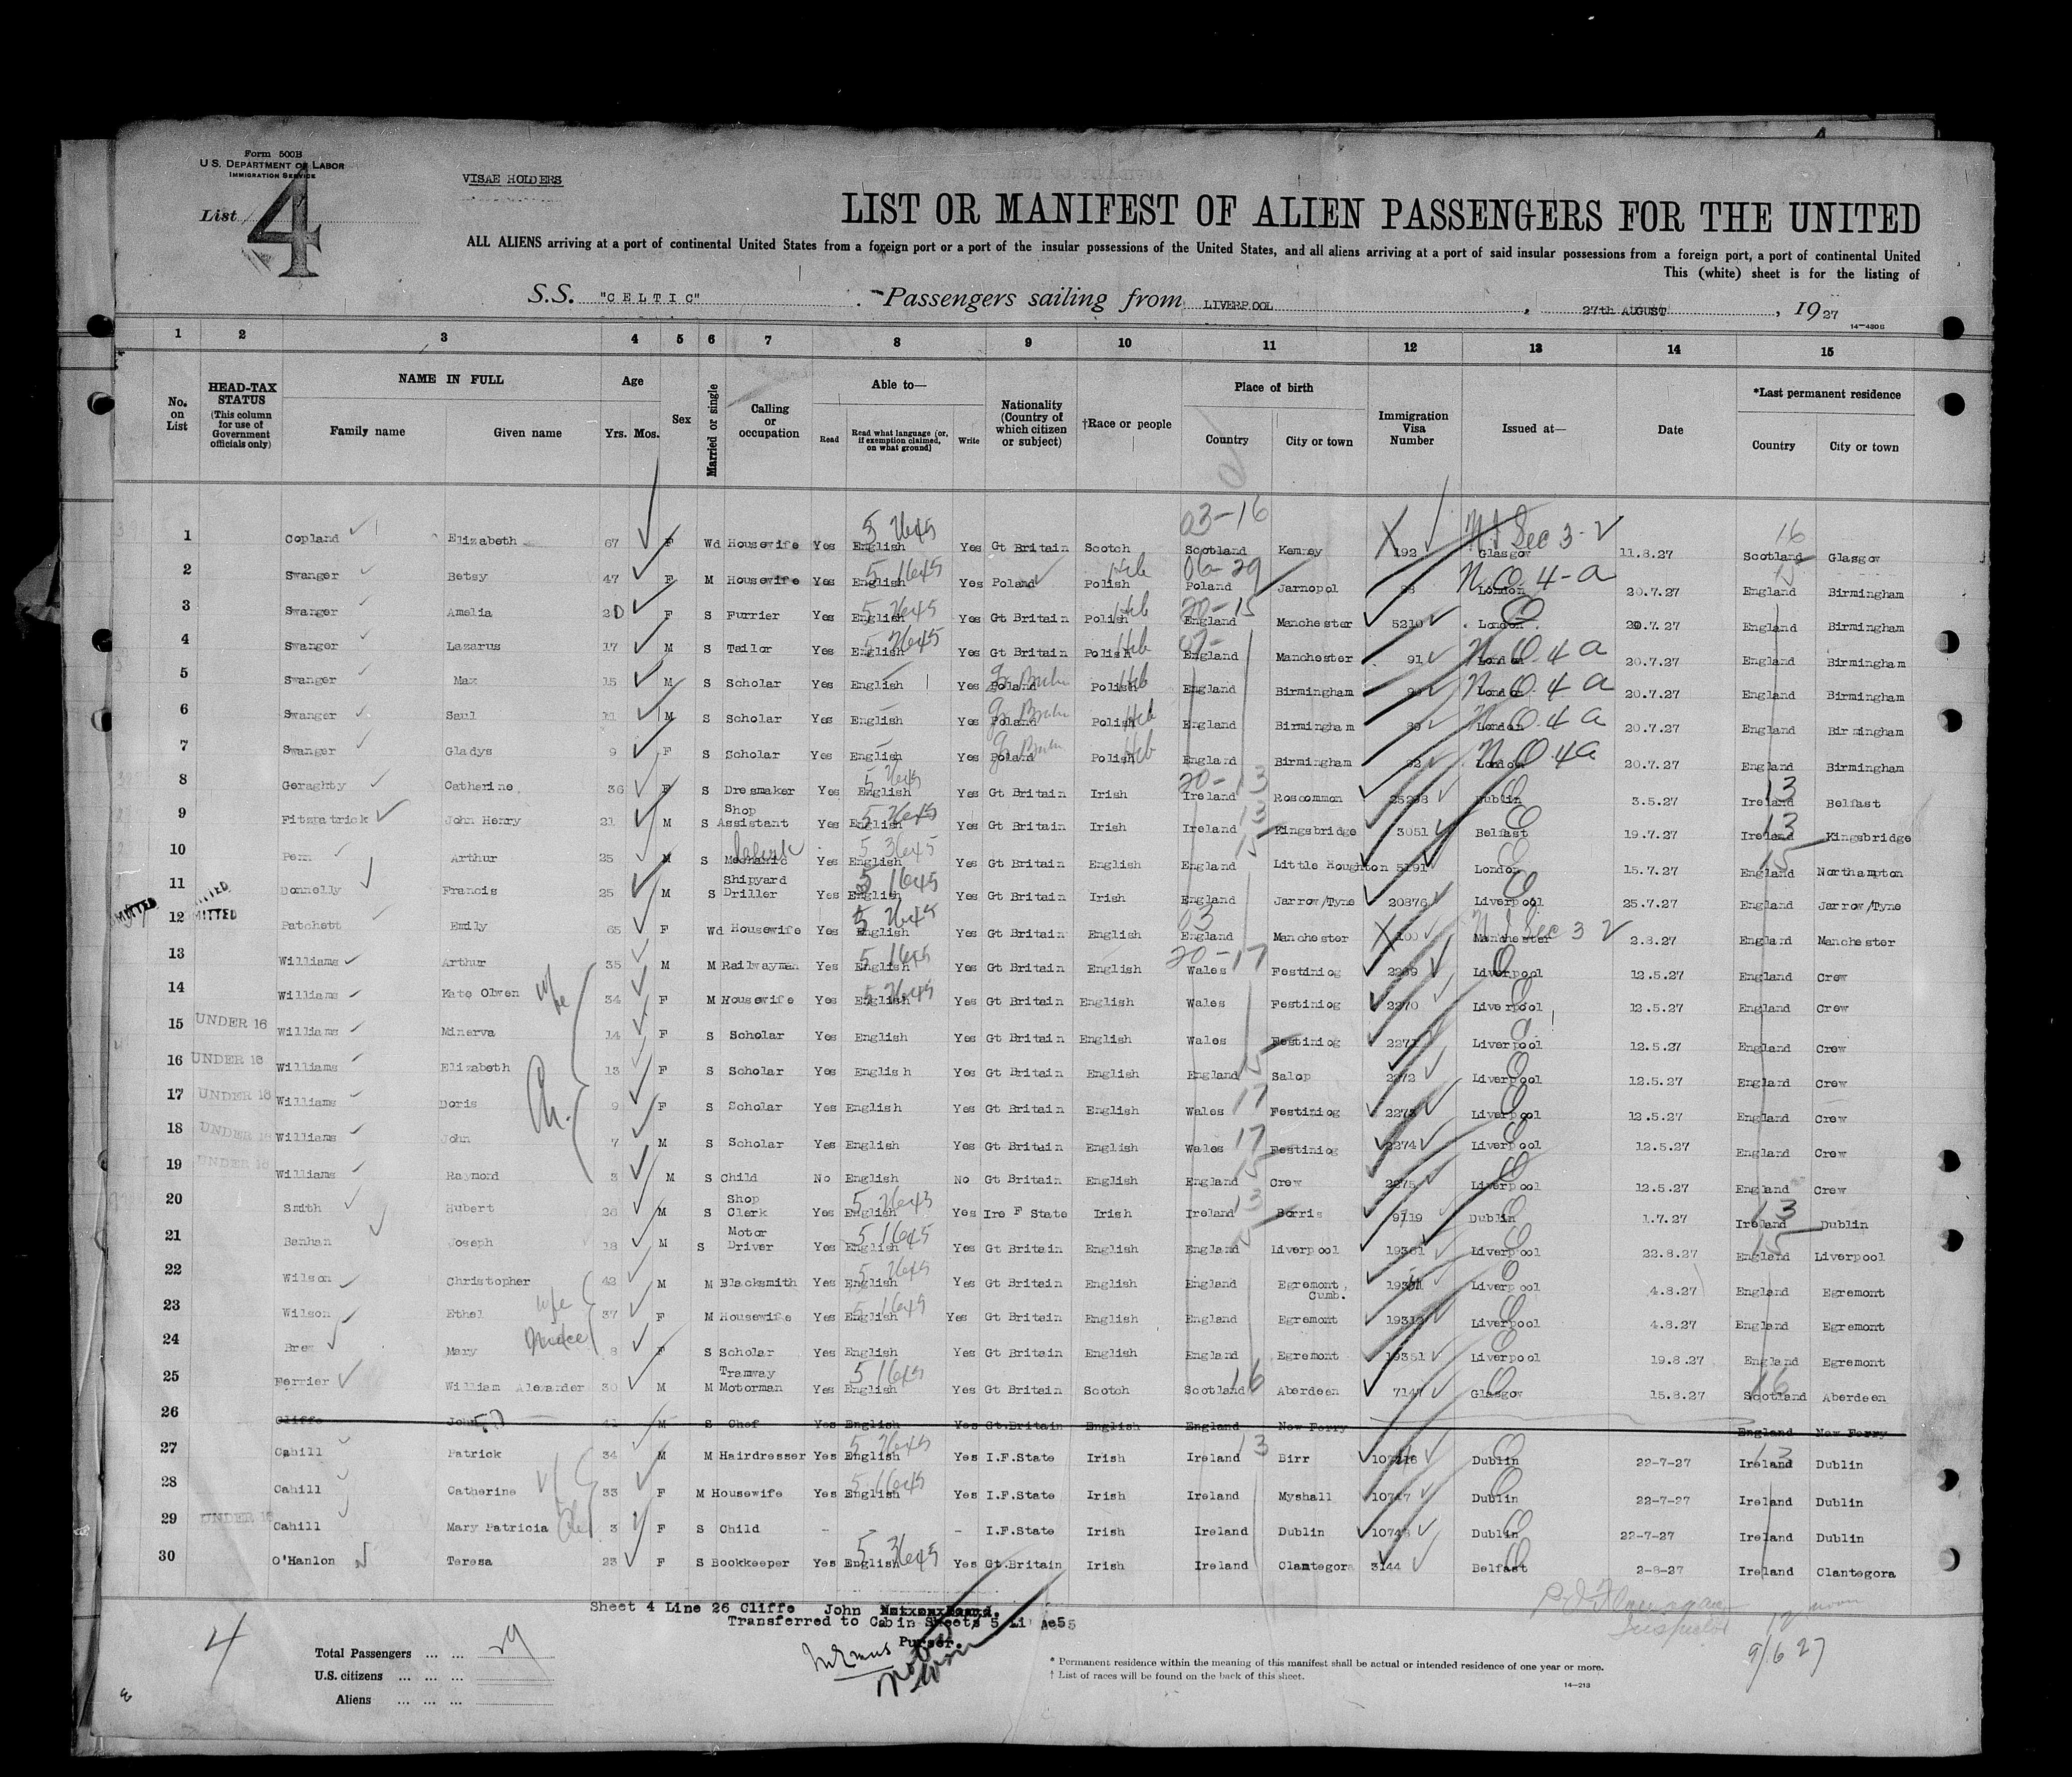 Form 500B
U. S. DEPARTMENT OF LABOR
IMMIGRATION SERVICE
VISAE HOLDERS
List 4
LIST OR MANIFEST OF ALIEN PASSENGERS FOR THE UNITED
ALL ALIENS arriving at a port of continental United States from a foreign port or a port of the insular possessions of the United States, and all aliens arriving at a port of said insular possessions from a foreign port, a port of continental United
This (white) sheet is for the listing of
S.S. "CELTIC" Passengers sailing from LIVERPOOL, 27th AUGUST, 1927
14-480G
1 2 3 4 5 6 7 8 9 10 11 12 13 14 15
No. on List
HEAD-TAX STATUS (This column for use of Government officials only)
NAME IN FULL Family name Given name
Age Yrs. Mos.
Sex
Married or single
Calling or occupation
Able to— Read Read what language (or, if exemption claimed, on what ground) Write
Nationality (Country of which citizen or subject)
†Race or people
Place of birth Country City or town
Immigration Visa Number
Issued at—
Date
*Last permanent residence Country City or town
1 Copland Elizabeth 67 F Wd Housewife Yes English Yes Gt Britain Scotch Scotland Kemney 192 Glasgow 11.8.27 Scotland Glasgow
2 Swanger Betsy 47 F M Housewife Yes English Yes Poland Polish Heb Poland Jarnopol London 20.7.27 England Birmingham
3 Swanger Amelia 20 F S Furrier Yes English Yes Gt Britain Polish Heb England Manchester 5210 London 20.7.27 England Birmingham
4 Swanger Lazarus 17 M S Tailor Yes English Yes Gt Britain Polish Heb England Manchester 91 London 20.7.27 England Birmingham
5 Swanger Max 15 M S Scholar Yes English Yes Poland Polish Heb England Birmingham London 20.7.27 England Birmingham
6 Swanger Saul 11 M S Scholar Yes English Yes Poland Polish Heb England Birmingham London 20.7.27 England Birmingham
7 Swanger Gladys 9 F S Scholar Yes English Yes Poland Polish Heb England Birmingham 92 London 20.7.27 England Birmingham
8 Geraghty Catherine 36 F S Dresmaker Yes English Yes Gt Britain Irish Ireland Roscommon Dublin 3.5.27 Ireland Belfast
9 Fitzpatrick John Henry 21 M S Shop Assistant Yes English Yes Gt Britain Irish Ireland Kingsbridge 3051 Belfast 19.7.27 Ireland Kingsbridge
10 Arthur 25 M S Mechanic Yes English Yes Gt Britain English England Little Houghton 5191 London 15.7.27 England Northampton
11 Donnelly Francis 25 M S Shipyard Driller Yes English Yes Gt Britain Irish England Jarrow/Tyne 20876 Liverpool 25.7.27 England Jarrow/Tyne
12 Patchett Emily 65 F Wd Housewife Yes English Yes Gt Britain English England Manchester Manchester 2.8.27 England Manchester
13 Williams Arthur 35 M M Railwayman Yes English Yes Gt Britain English Wales Festiniog 2269 Liverpool 12.5.27 England Crew
14 Williams Kate Olwen 34 F M Housewife Yes English Yes Gt Britain English Wales Festiniog 2270 Liverpool 12.5.27 England Crew
15 UNDER 16 Williams Minerva 14 F S Scholar Yes English Yes Gt Britain English Wales Festiniog 2271 Liverpool 12.5.27 England Crew
16 UNDER 16 Williams Elizabeth 13 F S Scholar Yes English Yes Gt Britain English England Salop 2272 Liverpool 12.5.27 England Crew
17 UNDER 16 Williams Doris 9 F S Scholar Yes English Yes Gt Britain English Wales Festiniog 2273 Liverpool 12.5.27 England Crew
18 UNDER 16 Williams John 7 M S Scholar Yes English Yes Gt Britain English Wales Festiniog 2274 Liverpool 12.5.27 England Crew
19 UNDER 16 Williams Raymord 3 M S Child No English No Gt Britain English England Crew 2275 Liverpool 12.5.27 England Crew
20 Smith Hubert 26 M S Shop Clerk Yes English Yes Ire F State Irish Ireland Borris 9119 Dublin 1.7.27 Ireland Dublin
21 Joseph 18 M S Motor Driver Yes English Yes Gt Britain English England Liverpool 19361 Liverpool 22.8.27 England Liverpool
22 Wilson Christopher 42 M M Blacksmith Yes English Yes Gt Britain English England Egremont, Cumb. Liverpool 4.8.27 England Egremont
23 Wilson Ethel 37 F M Housewife Yes English Yes Gt Britain English England Egremont Liverpool 4.8.27 England Egremont
24 Brew Mary 8 F S Scholar Yes English Yes Gt Britain English England Egremont 19351 Liverpool 19.8.27 England Egremont
25 Ferrier William Alexander 30 M M Tramway Motorman Yes English Yes Gt Britain Scotch Scotland Aberdeen Glasgow 15.8.27 Scotland Aberdeen
26 Cliffe John 41 M S Chef Yes English Yes Gt.Britain English England New Ferry England New Ferry
27 Cahill Patrick 34 M M Hairdresser Yes English Yes I.F.State Irish Ireland Birr Dublin 22-7-27 Ireland Dublin
28 Cahill Catherine 33 F M Housewife Yes English Yes I.F.State Irish Ireland Myshall 10747 Dublin 22-7-27 Ireland Dublin
29 UNDER 16 Cahill Mary Patricia 3 F S Child - - - I.F.State Irish Ireland Dublin 10748 Dublin 22-7-27 Ireland Dublin
30 O'Hanlon Teresa 23 F S Bookkeeper Yes English Yes Gt.Britain Irish Ireland Clantegora 3144 Belfast 2-8-27 Ireland Clantegora
Sheet 4 Line 26 Cliffe John
Transferred to Cabin Sheet 5 Line 5
Purser.
4
Total Passengers ... ... 29
U.S. citizens ... ... ...
Aliens ... ... ...
* Permanent residence within the meaning of this manifest shall be actual or intended residence of one year or more.
† List of races will be found on the back of this sheet.
14-213
Inspector
12 noon
9/6 27